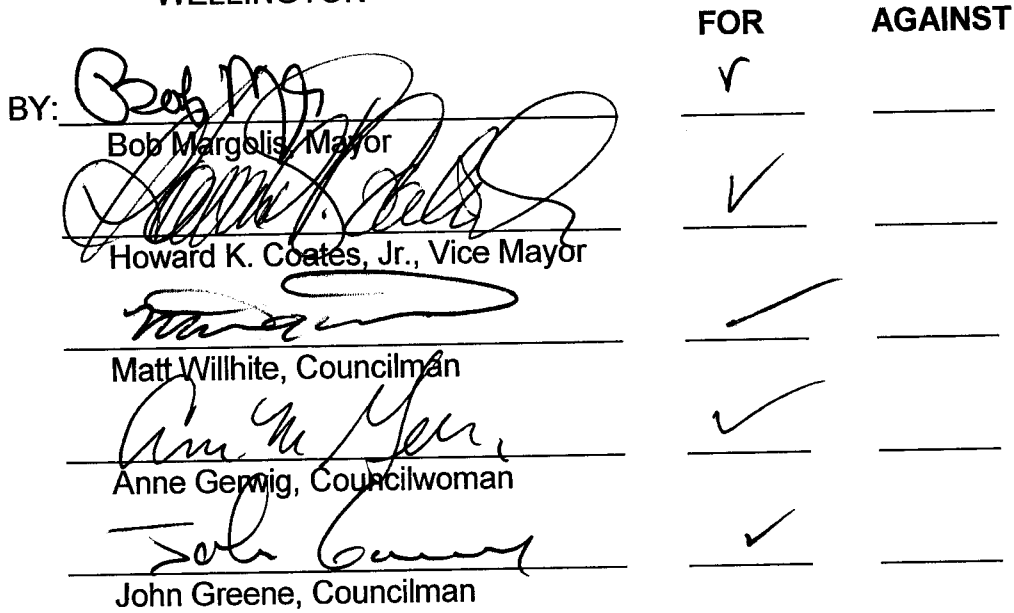 WELLINGTON
FOR AGAINST
BY: Bob Ma
Bob Margolis, Mayor
Howard K. Coates, Jr., Vice Mayor
Matt Willhite, Councilman
Anne Gerwig, Councilwoman
John Greene, Councilman